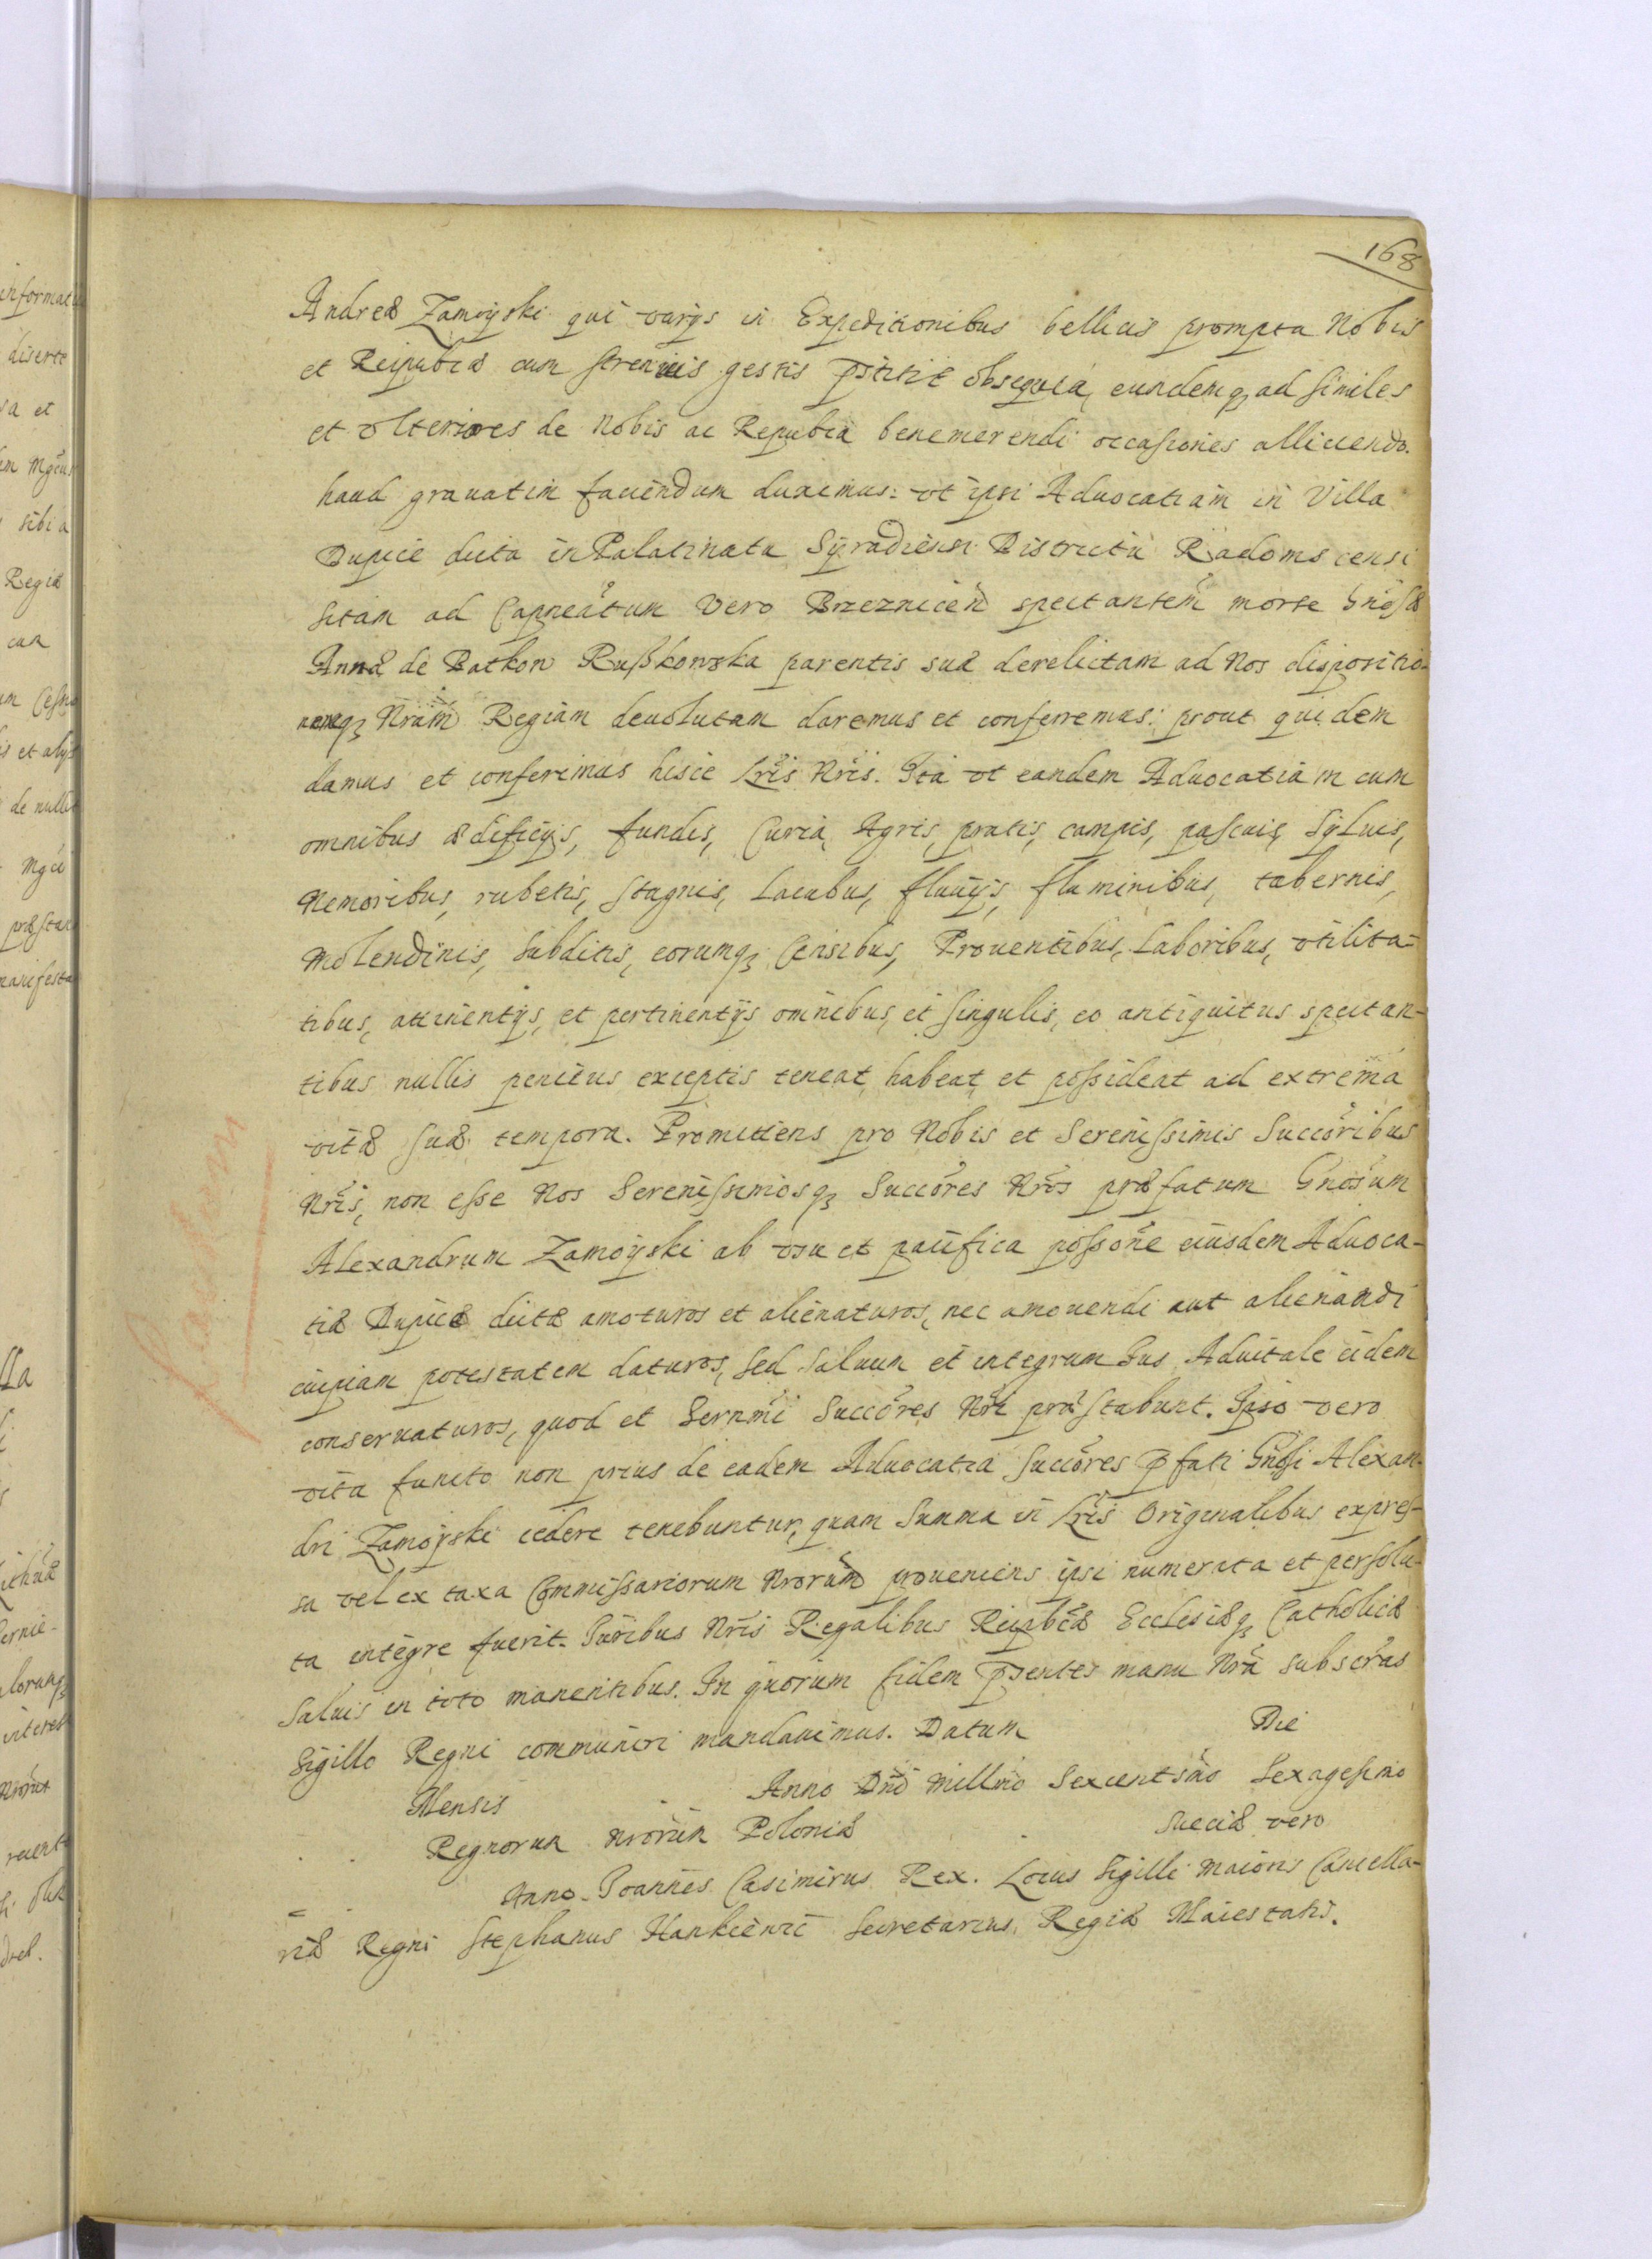 168
Andreæ Zamoÿski qui varÿs in Expeditionibus bellicis prompta Nobis
et Reipublcæ cum strenuis gestis pstitit obsequia, eundemq; ad similes
et vlteriores de Nobis ac Republca benemerendi occasiones alliciendo.
haud gravatim faciendum duximus: vt ipsi Aduocatiam in Villa
Dupice dicta in Palatinatu Syradiensi Districtu Radomscensi
sitam ad Capneatum vero Brzeznicen spectantem morte Gnosæ
Annæ de Batkow Rußkowska parentis suæ derelictam ad Nos dispositio-
nemq; Nram Regiam deuolutam daremus et conferremus: prout quidem
damus et conferimus hisce Lris Nris. Ita vt eandem Aduocatiam cum
omnibus ædificÿs, fundis, Curia, Agris, pratis, campis, pascuis, Syluis,
Nemoribus, rubetis, stagnis, Lacubus, fluuÿs, fluminibus, tabernis,
Molendinis, Subditis, eorumq; Censibus, Prouentibus, Laboribus, vtilita-
tibus, attinentÿs, et pertinentÿs omnibus, et singulis, eo antiquitus spectan-
tibus nullis penitus exceptis teneat, habeat, et possideat ad extrema
vitæ suæ tempora. Promittens pro Nobis et Serenissimis Succoribus
Nris, non esse Nos Serenissimosq; Succores Nros præfatum Gnosum
Alexandrum Zamoÿski ab vsu et pacifica possone eiusdem Aduoca-
tiæ Dupice dictæ amoturos et alienaturos, nec amouendi aut alienandi
cuipiam potestatem daturos, sed Saluum et integrum Ius Aduitale eidem
conseruaturos, quod et Sernmi Succores Nri præstabunt. Ipso vero
vita functo non prius de eadem Aduocatia Succores pfati Gnosi Alexan-
dri Zamoÿski cedere tenebuntur, quam Summa in Lris Originalibus expres-
sa vel ex taxa Commissariorum Nrorum proueniens ipsi numerata et persolu-
ta integre fuerit. Iuribus Nris Regalibus Reipblcæ Ecclesiæq; Catholicæ
Saluis in toto manentibus. In quorum fidem psentes manu Nra subscras
Sigillo Regni communiri mandauimus. Datum Die
Mensis Anno Dni Millmo Sexcentsmo Sexagesimo
Regnorum Nrorum Poloniæ Sueciæ vero
Anno. Joannes Casimirus Rex. Locus Sigilli maioris Cancella-
riæ Regni Stephanus Hankiewic Secretarius Regiæ Maiestatis.